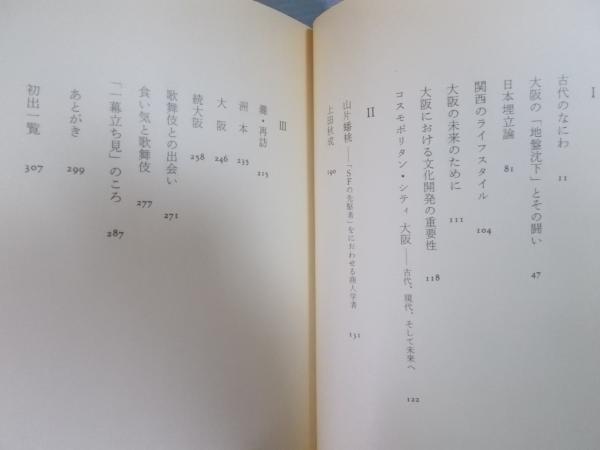 I
古代のなにわ 11
大阪の「地盤沈下」とその闘い 47
日本埋立論 81
関西のライフスタイル 104
大阪の未来のために 111
大阪における文化開発の重要性 118
コスモポリタン・シティ 大阪——古代、現代、そして未来へ 122
II
山片蟠桃——「SFの先駆者」をにおわせる商人学者 131
上田秋成 190
III
灘・再訪 215
洲本 235
大阪 246
続大阪 258
歌舞伎との出会い 271
食い気と歌舞伎 277
「一幕立ち見」のころ 287
あとがき 299
初出一覧 307